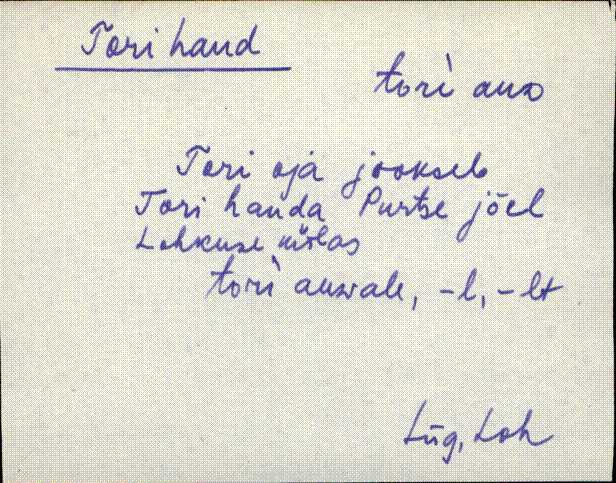 Tori haud
tori̬ auᴅ
Tori oja jookseb
Tori hauda Purtse jõel
Lohkuse külas
tori̬ auwale, -l, -lt
Lüg, Loh